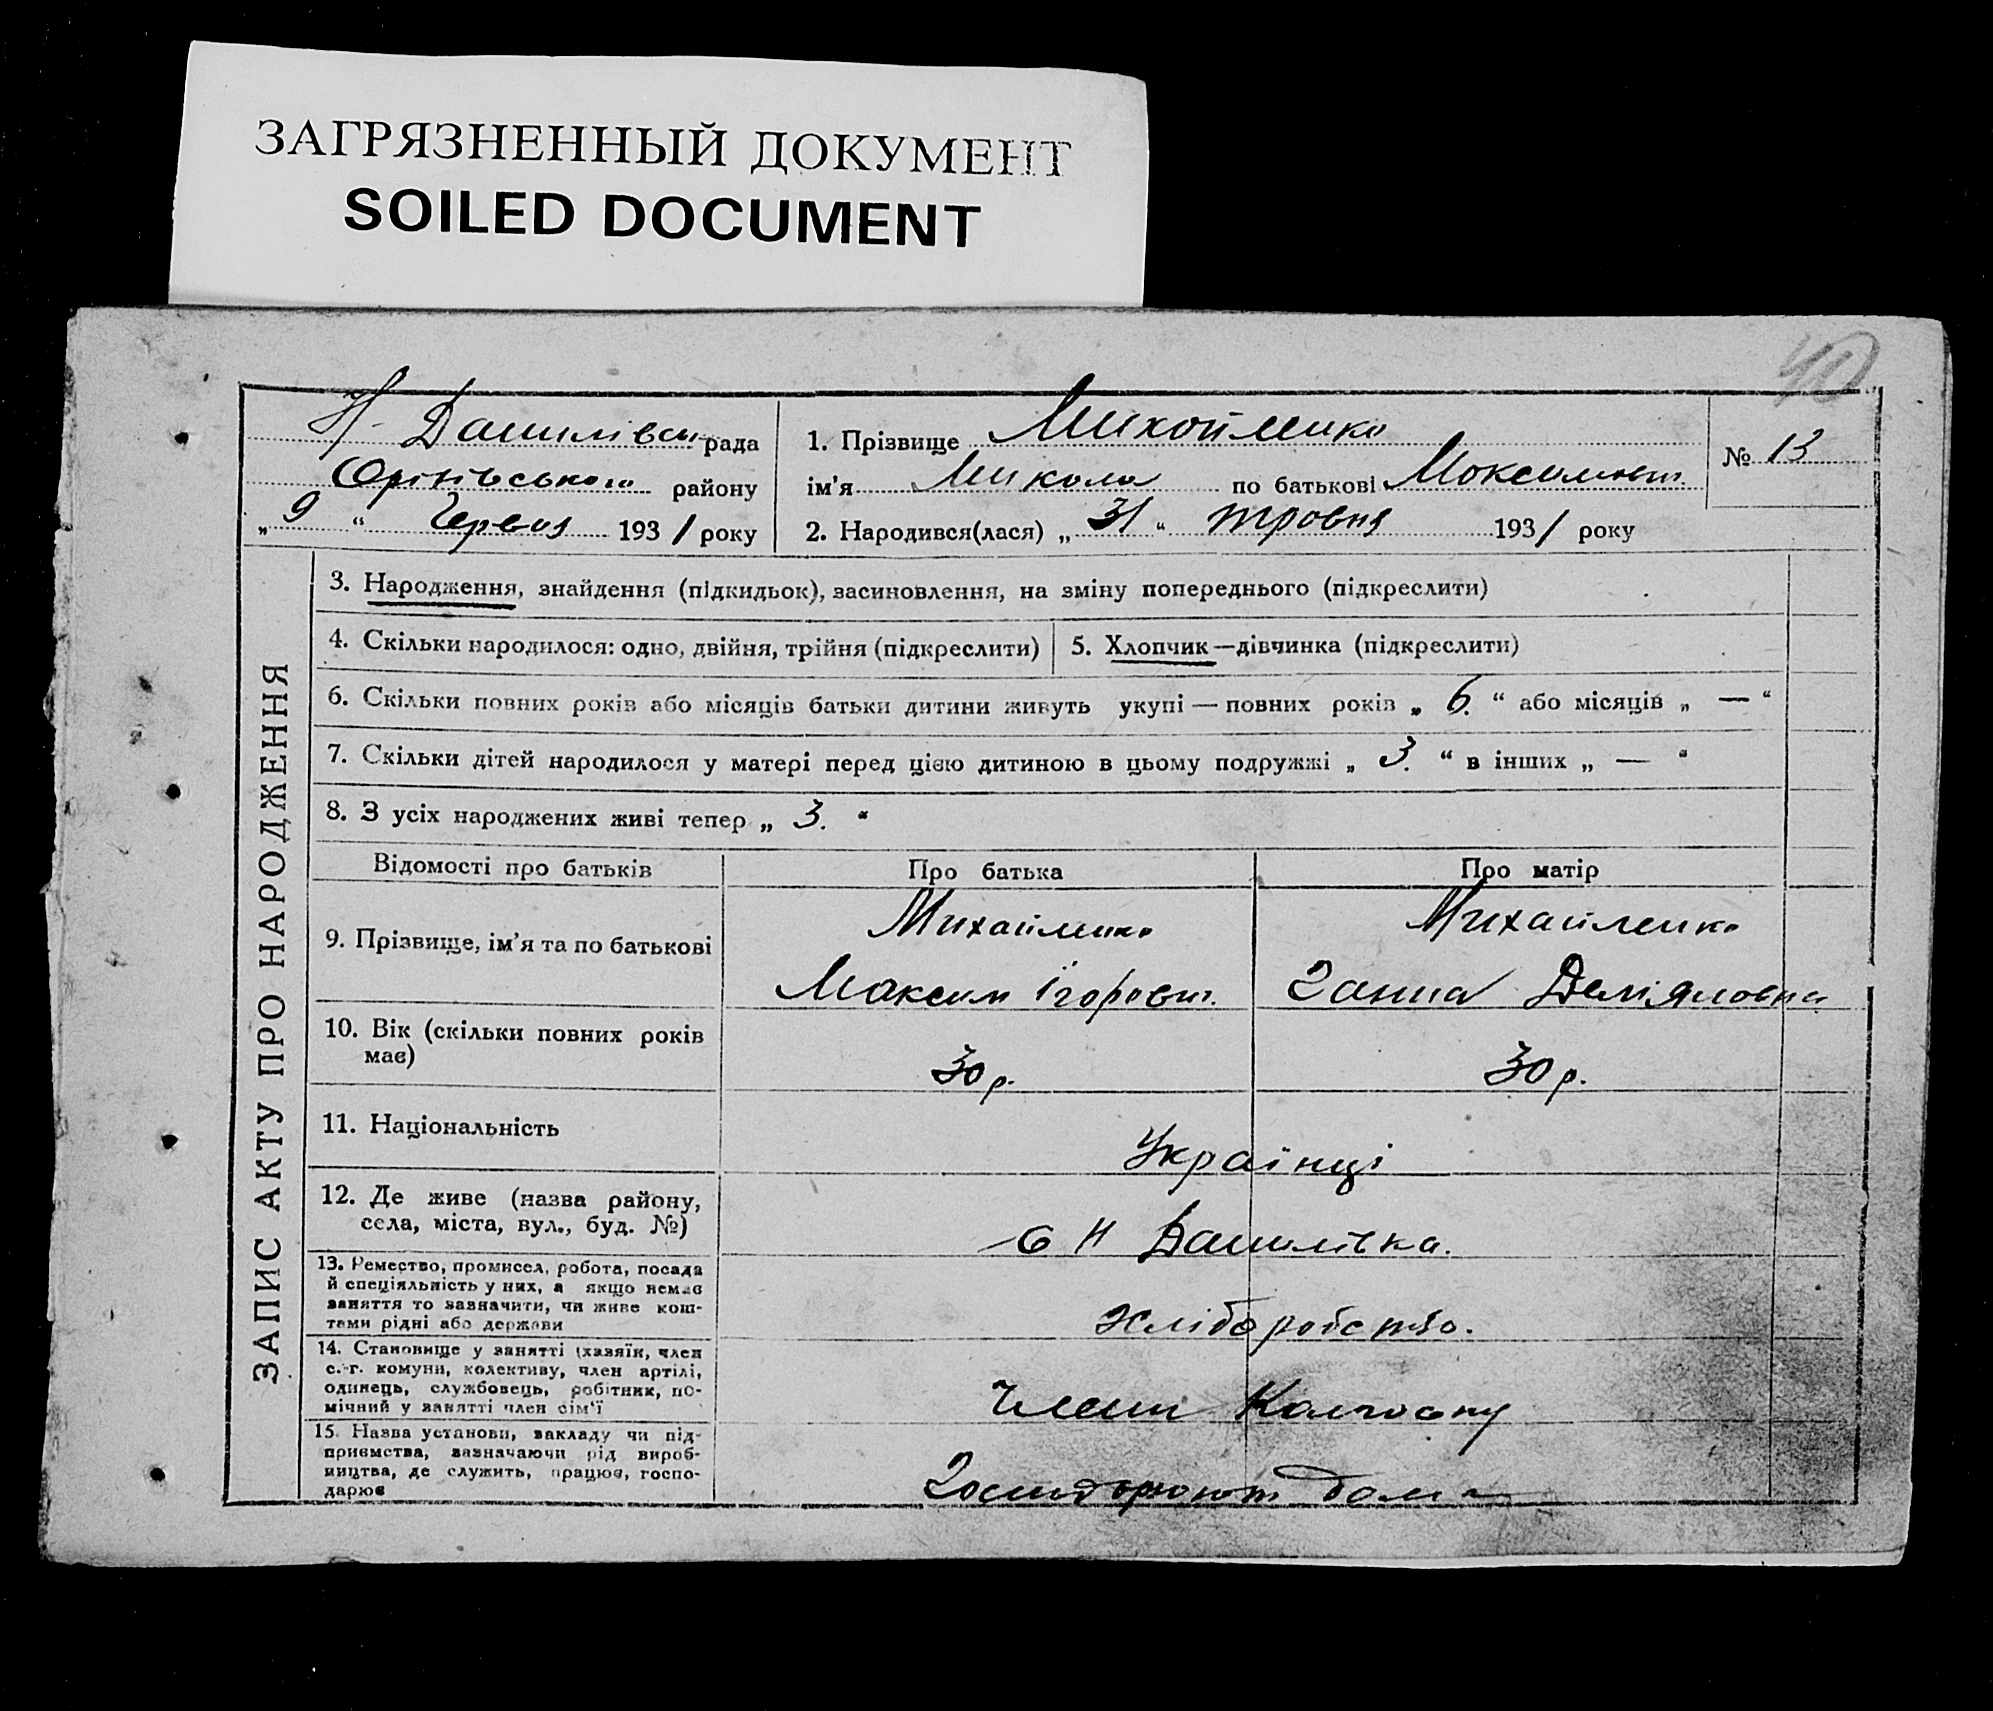 ЗАГРЯЗНЕННЫЙ ДОКУМЕНТ
SOILED DOCUMENT
40
Н-Данилівська рада
району
„ 9 “ Червня 1931 року
1. Прізвище Михайленко
ім'я Микола по батькові Максимович
2. Народився(лася) „ 31 “ травня 1931 року
№ 13
ЗАПИС АКТУ ПРО НАРОДЖЕННЯ
3. Народження, знайдення (підкидьок), засиновлення, на зміну попереднього (підкреслити)
4. Скільки народилося: одно, двійня, трійня (підкреслити)
5. Хлопчик—дівчинка (підкреслити)
6. Скільки повних років або місяців батьки дитини живуть укупі — повних років „ 6. “ або місяців „ — “
7. Скільки дітей народилося у матері перед цією дитиною в цьому подружжі „ 3. “ в інших „ — “
8. З усіх народжених живі тепер „ 3. “
Відомості про батьків Про батька Про матір
9. Прізвище, ім'я та по батькові
Михайленко
Максим Ігорович
Михайленко
Ганна Деміяновна
10. Вік (скільки повних років
має)
30 р.
30 р.
11. Національність
Українці
12. Де живе (назва району,
села, міста, вул., буд. №)
с Н Данилівка.
13. Ремество, промисел, робота, посада
й спеціяльність у них, а якщо немає
заняття то зазначити, чи живе кош-
тами рідні або держави
хліборобство.
14. Становище у занятті (хазяїн, член
с.-г. комуни, колективу, член артілі,
одинець, службовець, робітник, по-
мічний у занятті член сім'ї
Члени Колгоспу
15. Назва установи, закладу чи під-
приємства, зазначаючи рід вироб-
ництва, де служить, працює, госпо-
дарює
Господарюют дома